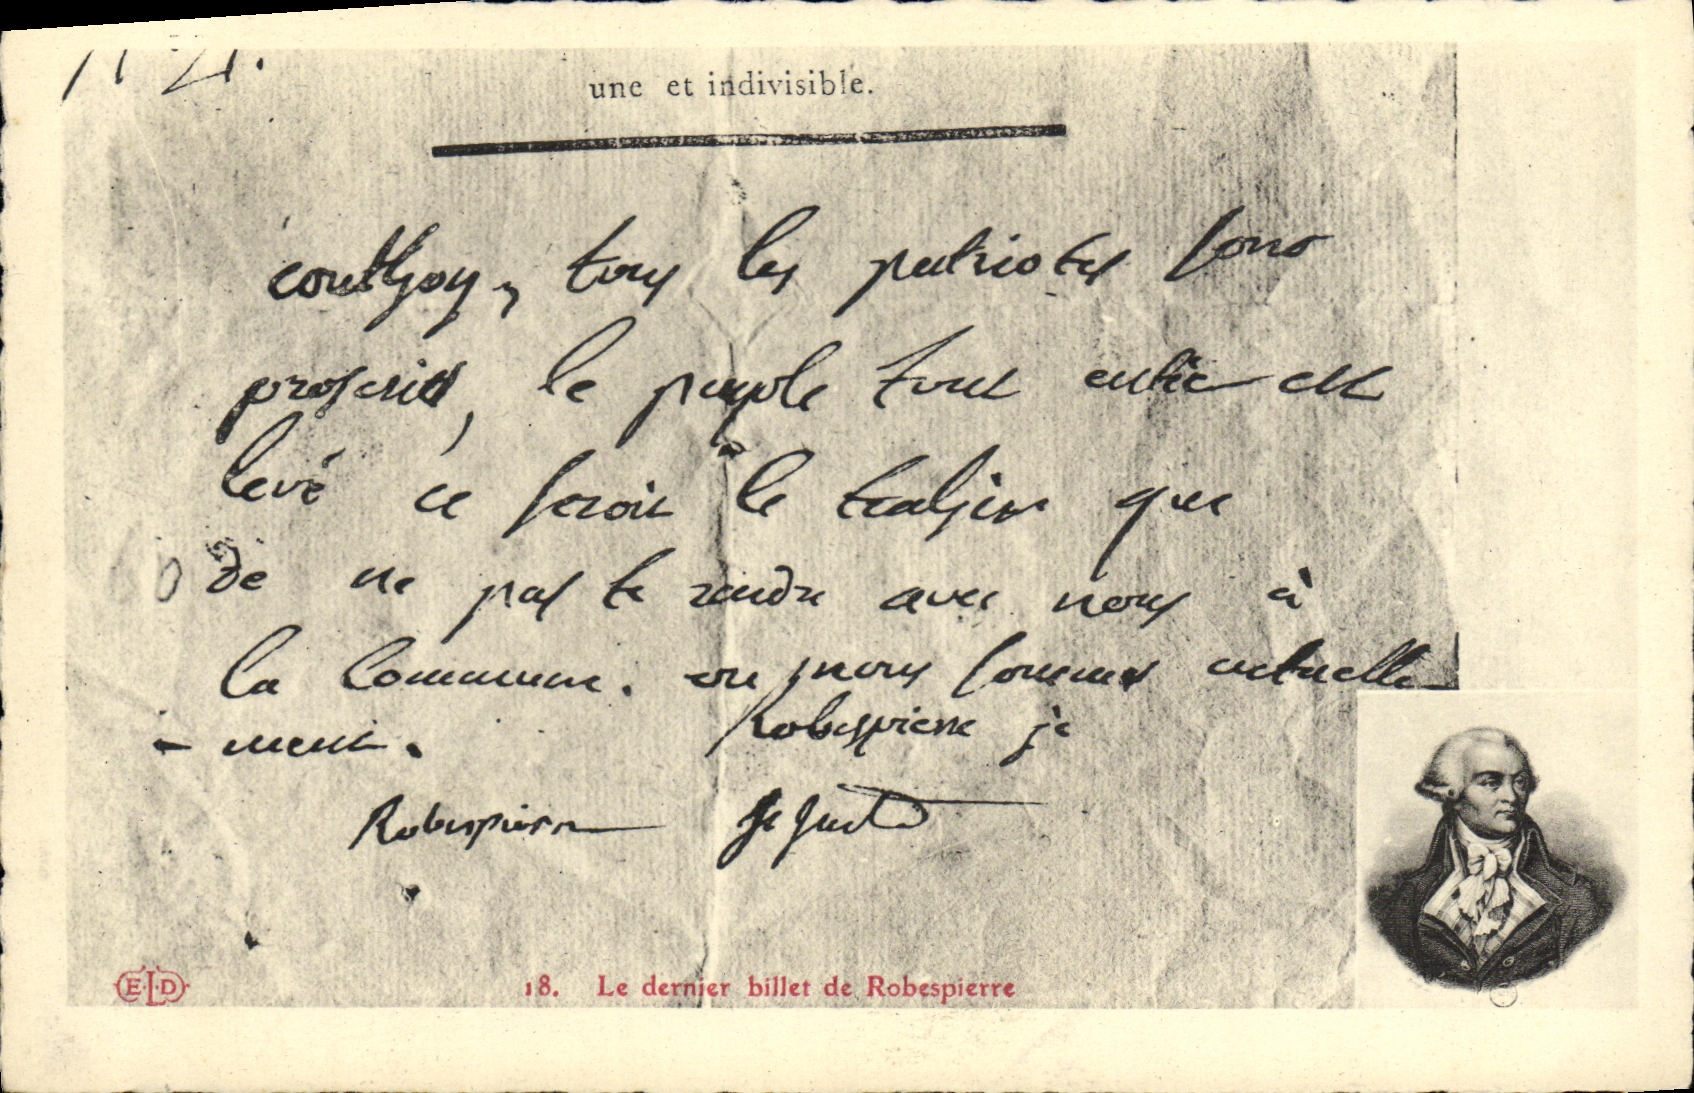 une et indivisible.
couthon, tous les patriotes sont
proscrits, le peuple tout entier est
levé ce seroit le trahir que
de ne pas te rendre avec nous à
la Commune. ou nous sommes actuelle-
-ment. Robespierre je
Robespierre St Just
E.L.D
18. Le dernier billet de Robespierre